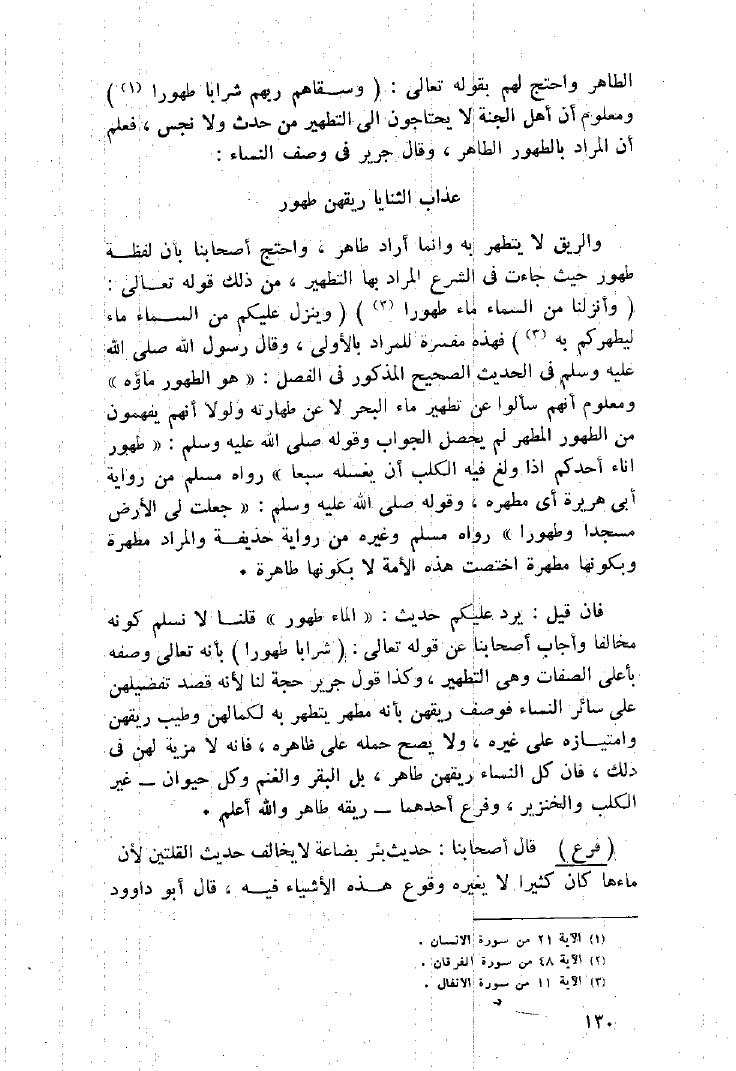 الطاهر واحتج لهم بقوله تعالى : ( وسقاهم ربهم شرابا طهورا (١) )
ومعلوم أن أهل الجنة لا يحتاجون الى التطهير من حدث ولا نجس ، فعلم
أن المراد بالطهور الطاهر ، وقال جرير فى وصف النساء :
عذاب الثنايا ريقهن طهور
والريق لا يتطهر به وانما أراد طاهر ، واحتج أصحابنا بأن لفظة
طهور حيث جاءت فى الشرع المراد بها التطهير ، من ذلك قوله تعالى :
( وأنزلنا من السماء ماء طهورا (٢) ) ( وينزل عليكم من السماء ماء
ليطهركم به (٣) ) فهذه مفسرة للمراد بالأولى ، وقال رسول الله صلى الله
عليه وسلم فى الحديث الصحيح المذكور فى الفصل : « هو الطهور ماؤه »
ومعلوم أنهم سألوا عن تطهير ماء البحر لا عن طهارته ولولا أنهم يفهمون
من الطهور المطهر لم يحصل الجواب وقوله صلى الله عليه وسلم : « طهور
اناء أحدكم اذا ولغ فيه الكلب أن يغسله سبعا » رواه مسلم من رواية
أبى هريرة أى مطهره ، وقوله صلى الله عليه وسلم : « جعلت لى الأرض
مسجدا وطهورا » رواه مسلم وغيره من رواية حذيفة والمراد مطهرة
وبكونها مطهرة اختصت هذه الأمة لا بكونها طاهرة .
فان قيل : يرد عليكم حديث : « الماء طهور » قلنا لا نسلم كونه
مخالفا وأجاب أصحابنا عن قوله تعالى : ( شرابا طهورا ) بأنه تعالى وصفه
بأعلى الصفات وهى التطهير ، وكذا قول جرير حجة لنا لأنه قصد تفضيلهن
على سائر النساء فوصف ريقهن بأنه مطهر يتطهر به لكمالهن وطيب ريقهن
وامتيازه على غيره ، ولا يصح حمله على ظاهره ، فانه لا مزية لهن فى
ذلك ، فان كل النساء ريقهن طاهر ، بل البقر والغنم وكل حيوان ــ غير
الكلب والخنزير ، وفرع أحدهما ــ ريقه طاهر والله أعلم .
( فرع ) قال أصحابنا : حديث بئر بضاعة لا يخالف حديث القلتين لأن
ماءها كان كثيرا لا يغيره وقوع هذه الأشياء فيه ، قال أبو داوود
(١) الآية ٢١ من سورة الانسان .
(٢) الآية ٤٨ من سورة الفرقان .
(٣) الآية ١١ من سورة الانفال .
١٣٠